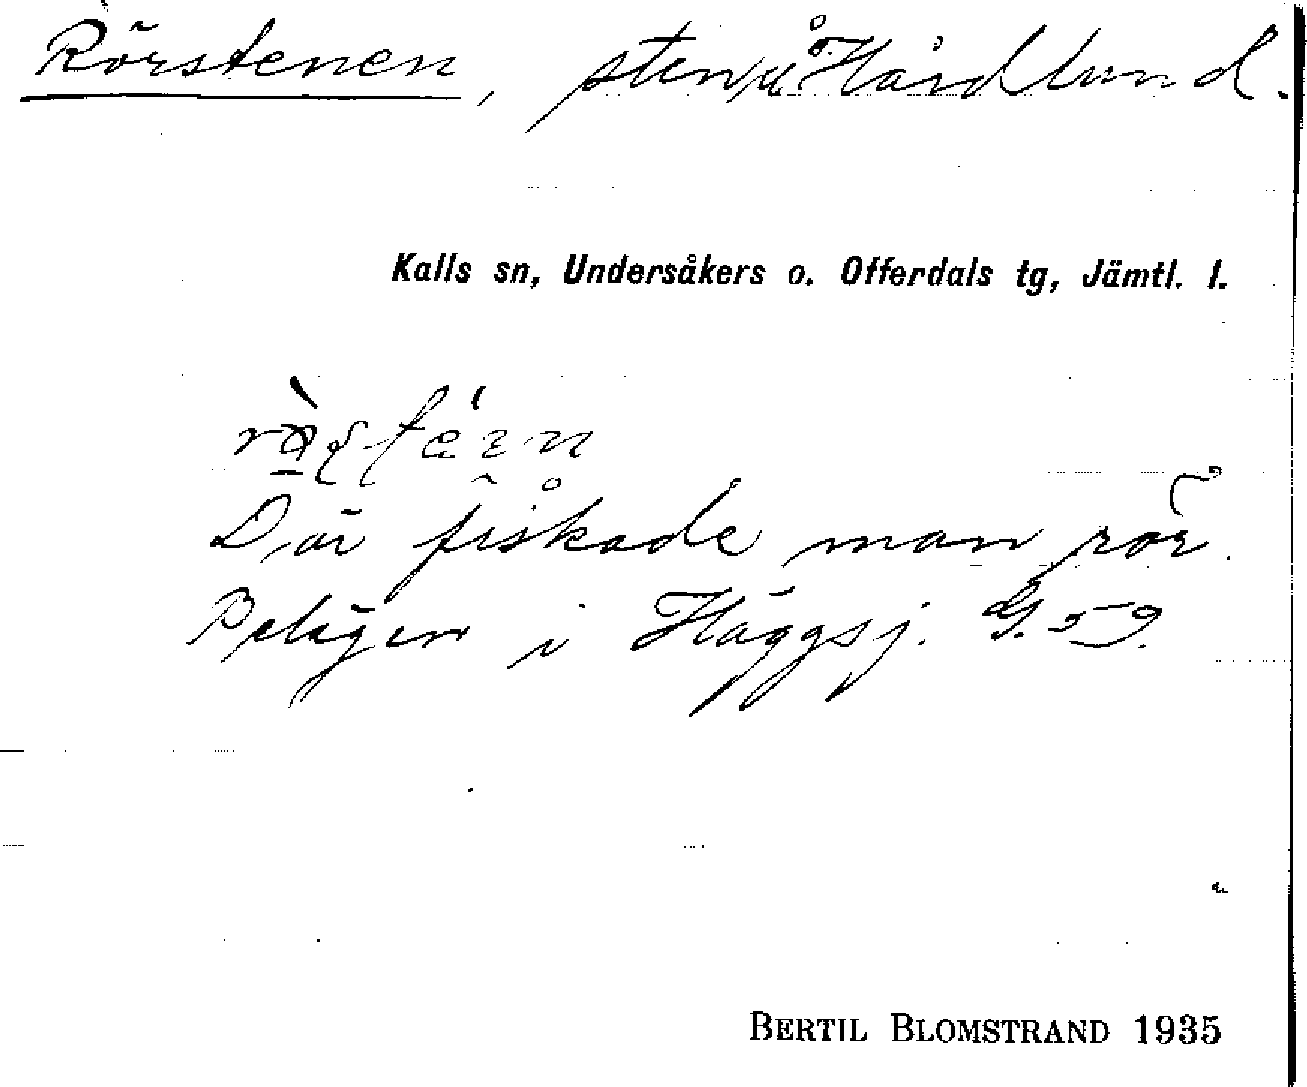 Rörstenen, sten på Hårdlund.
Kalls sn, Undersåkers o. Offerdals tg, Jämtl. l.
Där fiskade man rör.
Belägen i Häggsj. G. 59.
BERTIL BLOMSTRAND 1935